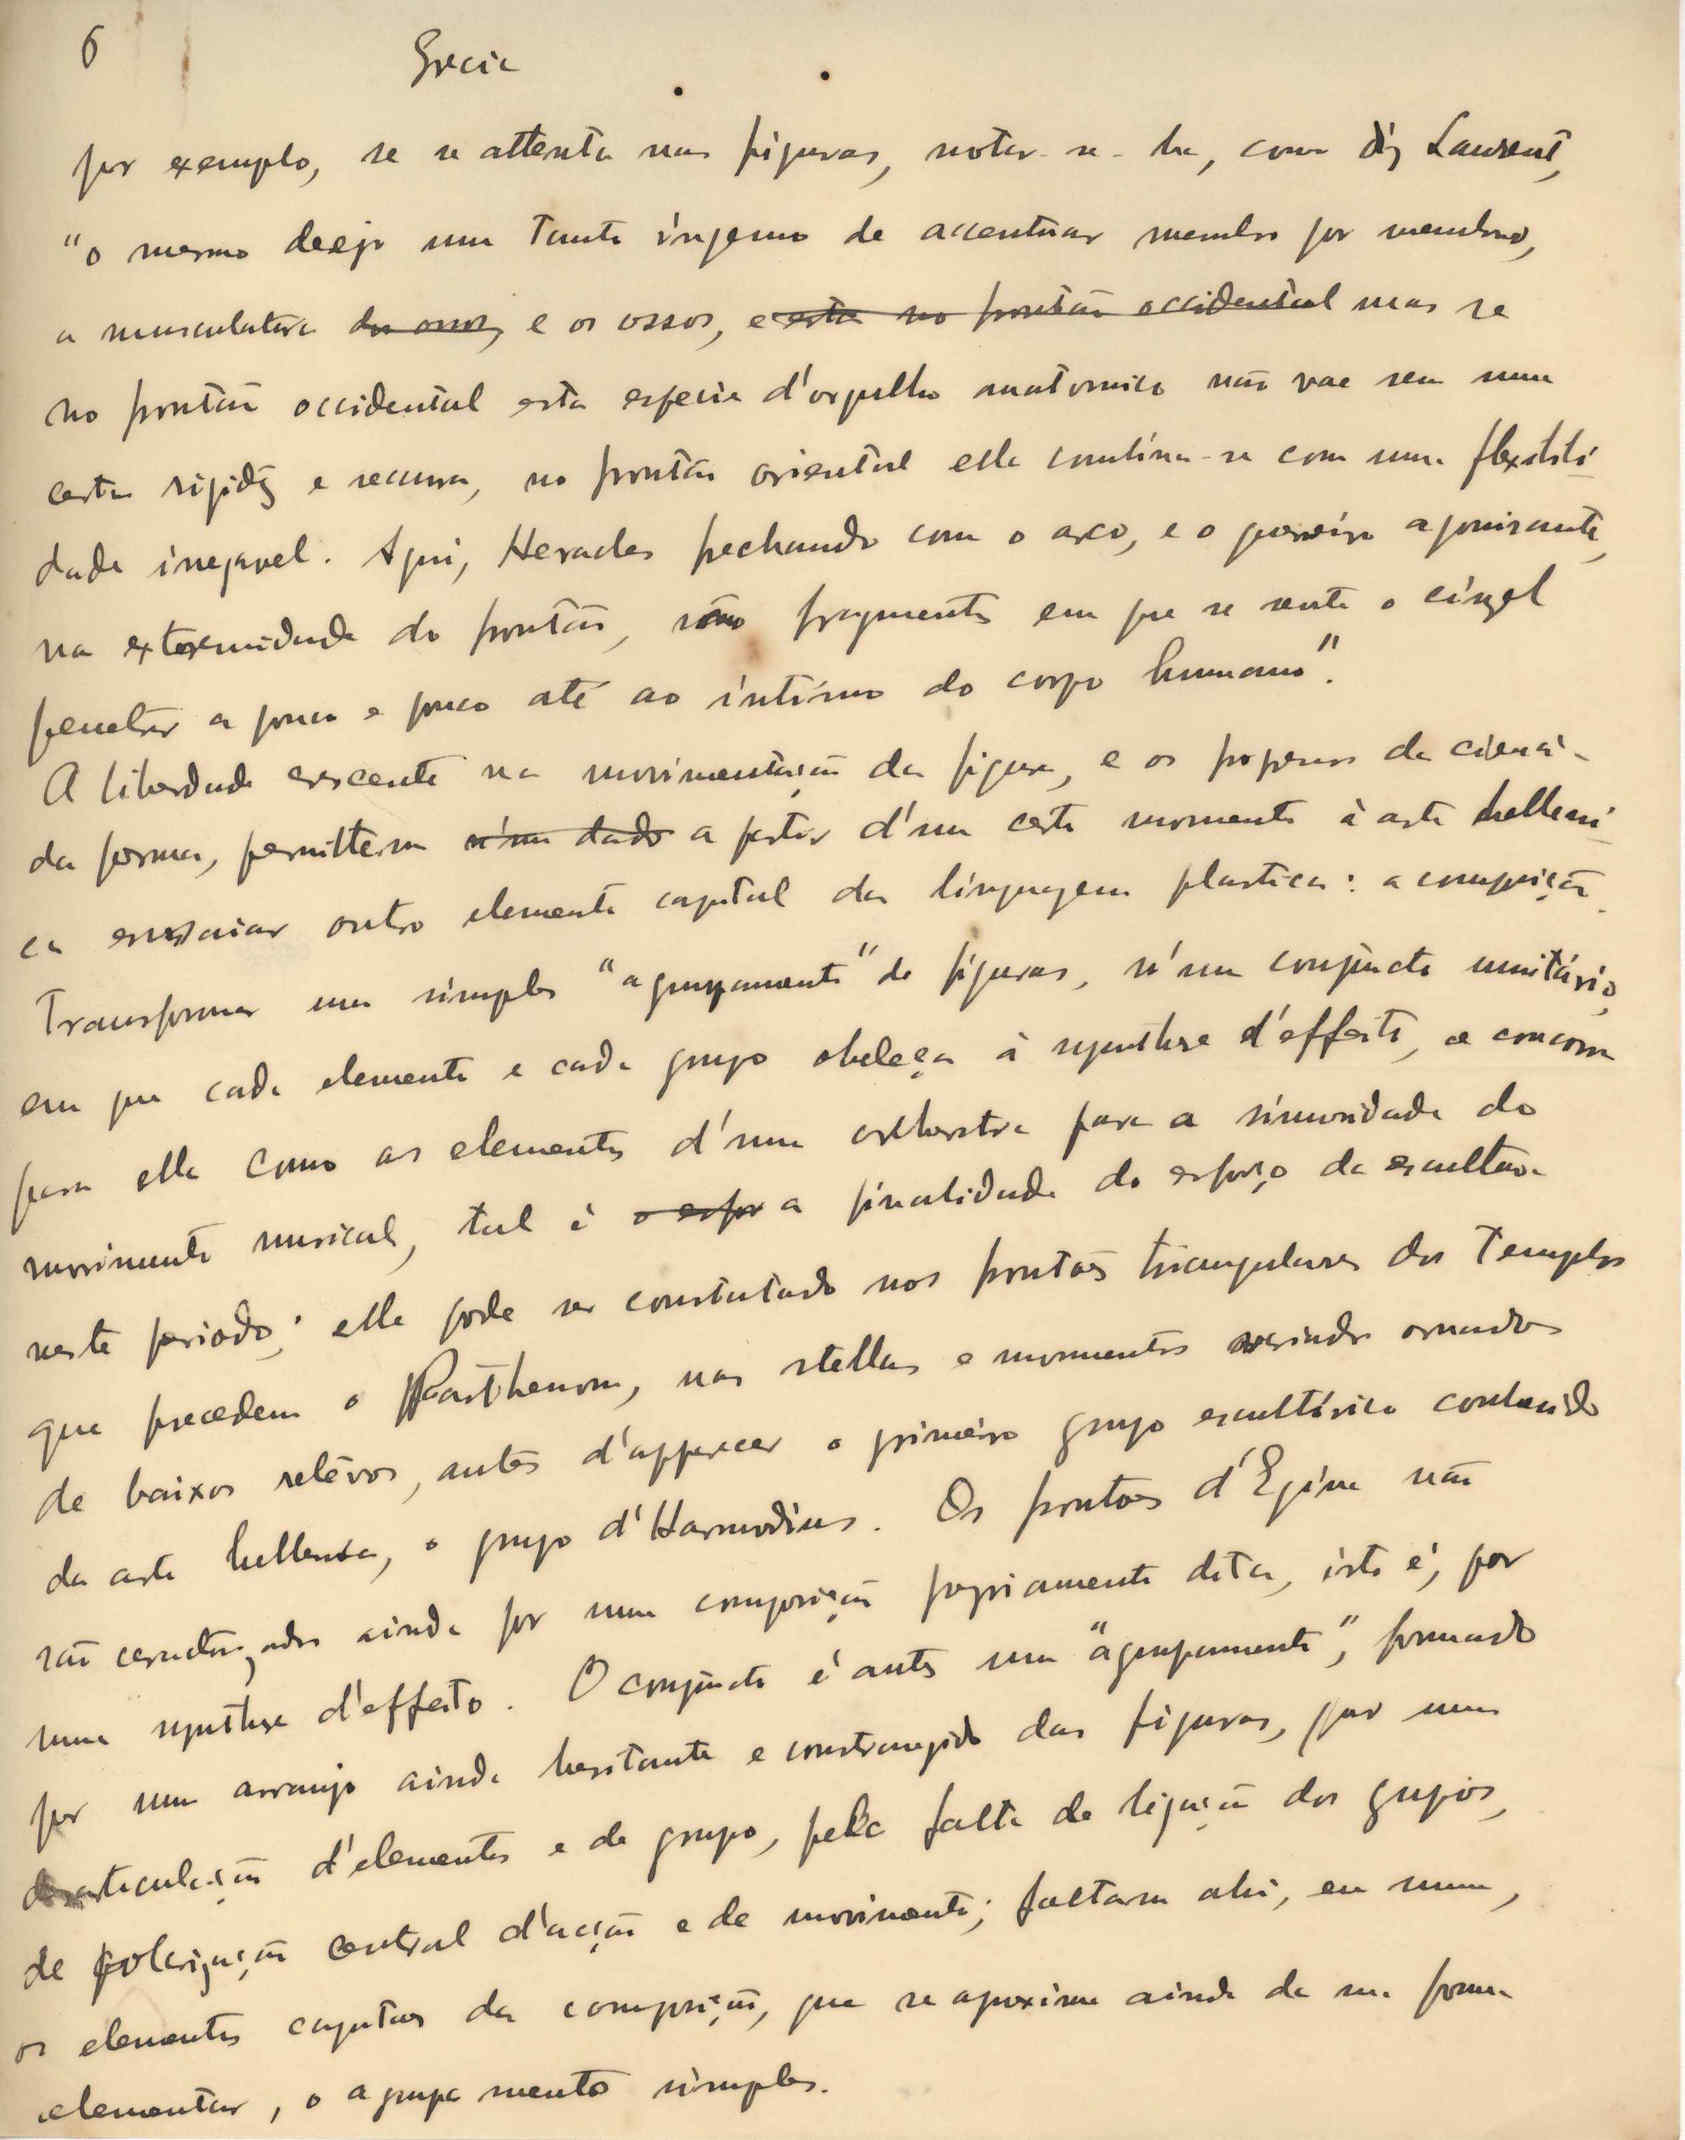 6 Grecia
por exemplo, se se attenta nas figuras, notar-se-ha, como diz Laurent,
"o mesmo desejo um tanto ingenuo de accentuar membro por membro,
a musculatura dos ossos, e os ossos, e esta no frontão occidental mas se
no frontão occidental esta especie d'orgulho anatomico não vae sem uma
certa rigidez e secura, no frontão oriental elle combina-se com uma flexibili-
dade inegavel. Aqui, Heracles frechando com o arco, e o guerreiro agonisante,
na extremidade do frontão, são fragmentos em que se sente o cinzel
penetrar a pouco e pouco até ao intimo do corpo humano".
A liberdade crescente na movimentação da figura, e os progressos da ciencia
da forma, permittem n'um dado a partir d'um certo momento à arte helleni-
ca ensaiar outro elemento capital da linguagem plastica: a composição.
Transformar um simples "agrupamento" de figuras, n'um conjuncto unitário,
em que cada elemento e cada grupo obedeça à synthese d'effeito, e concorra
para ella como os elementos d'uma orchestra para a sinuosidade do
movimento musical, tal é o esfor a finalidade do esforço da escultura
neste periodo; ella pode ser constatado nos frontões triangulares dos Templos
que precedem o Parthenon, nas stellas e monumentos ornados
de baixos relêvos, antes d'apparecer o primeiro grupo escultórico conhecido
da arte hellenica, o grupo d'Harmodius. Os frontões d'Egina não
são caracterizados ainda por uma composição propriamente dita, isto é, por
uma synthese d'effeito. O conjuncto é antes um "agrupamento", formado
por um arranjo ainda hesitante e constrangido das figuras, por uma
desarticulação d'elementos e de grupo, pela falta de ligação dos grupos,
de polarização central d'acção e de movimento; faltam ahi, em summa,
os elementos capitaes da composição, que se aproxima ainda da sua forma
elementar, o agrupamento simples.